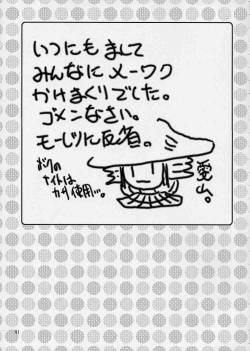 いつにもまして
みんなにメーワク
かけまくりでした。
ゴメンなさい。
モーレツに反省。
ボクの
ナイトは
カサ使用…。